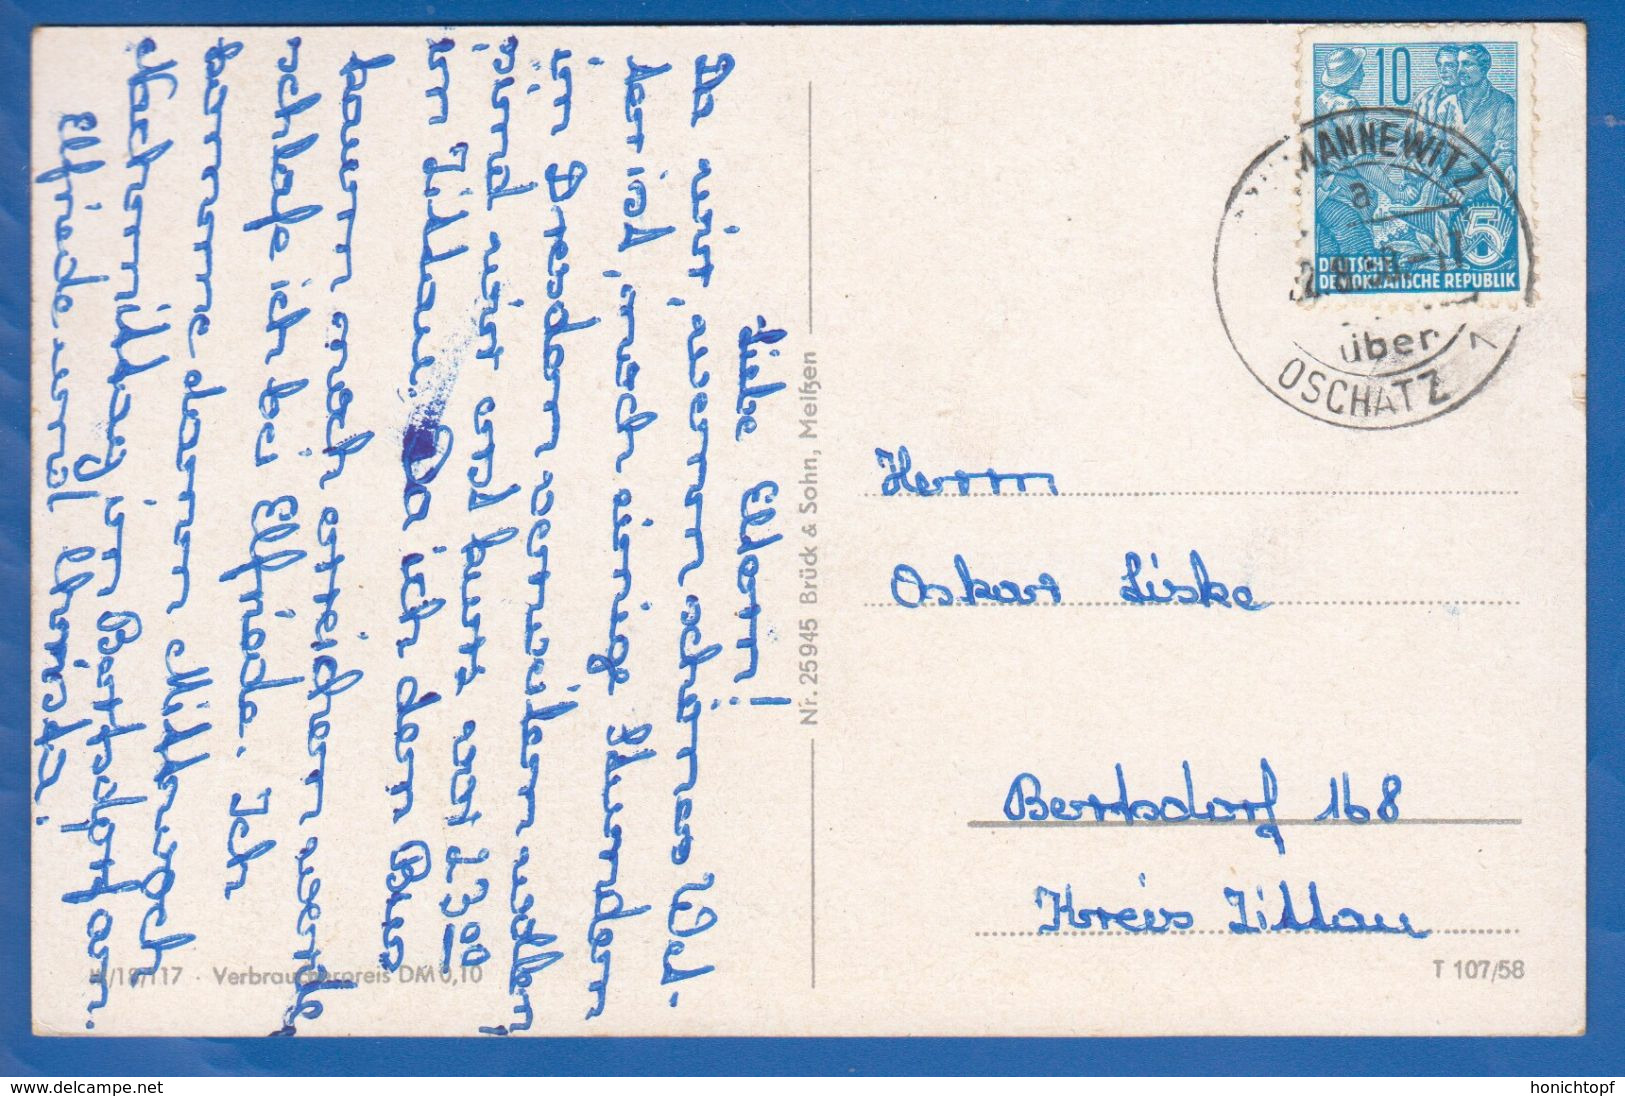 Liebe Eltern!
Da wir, wenn schönes Wet-
ter ist, noch einige Stunden
in Dresden verweilen wollen,
sind wir erst kurz vor 23⁰⁰
in Zittau. Da ich den Bus
kaum noch erreichen werde,
schlafe ich bei Elfriede. Ich
komme dann Mittwoch
Nachmittag in Bertsdorf an.
Elfriede und Christa.
Nr. 25945 Brück & Sohn, Meißen
IV/18/117 · Verbraucherpreis DM 0,10
10
5
DEUTSCHE
DEMOKRATISCHE REPUBLIK
MANNEWITZ
a
über
OSCHATZ
Herrn
Oskar Liske
Bertsdorf 168
Kreis Zittau
T 107/58
delcampe.net
honichtopf